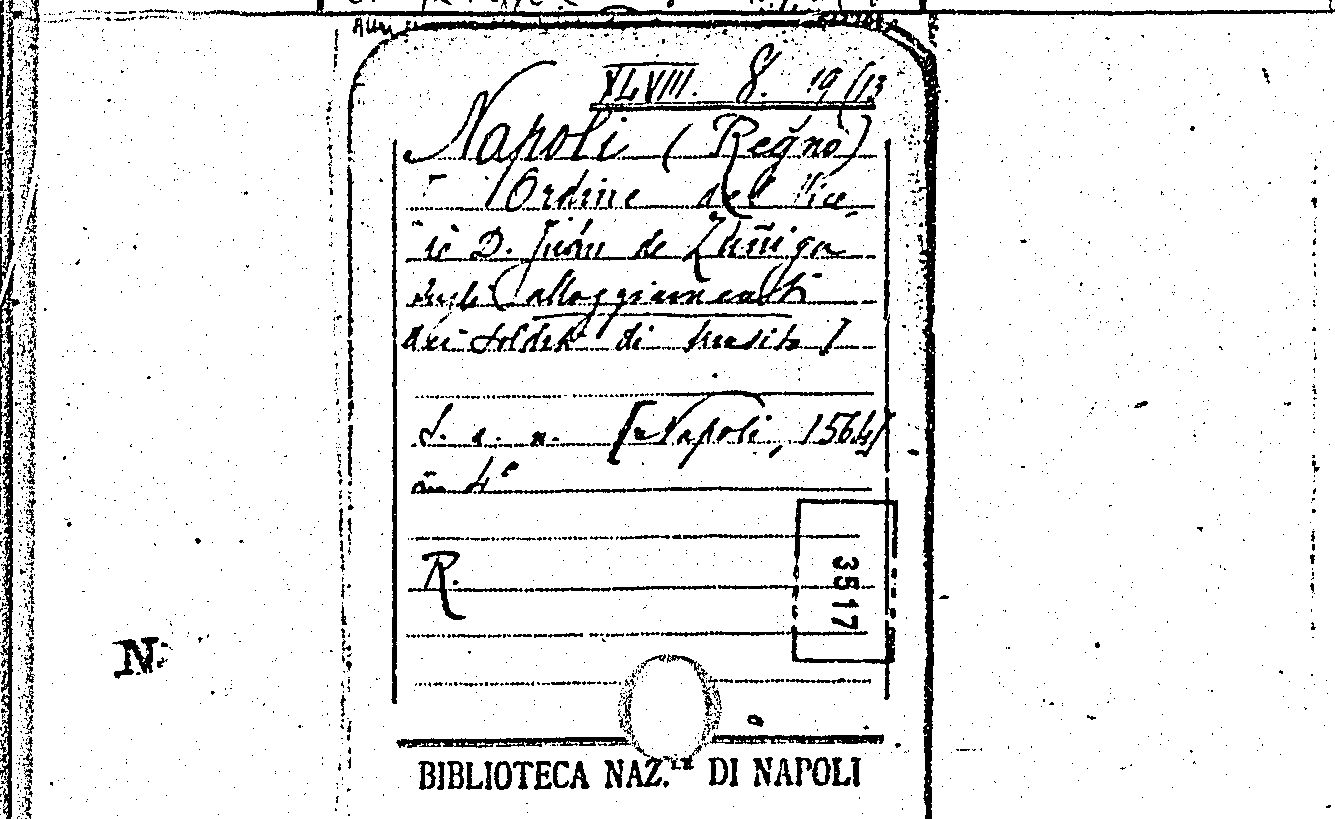 XLVIII. 8. 19/13
Napoli (Regno)
[Ordine del Vice
rè D. Juan de Zuñiga
sugli alloggiamenti
dei soldati di transito]
S. a. n. [Napoli, 1564]
in 4°
R.
3517
N
BIBLIOTECA NAZ.LE DI NAPOLI